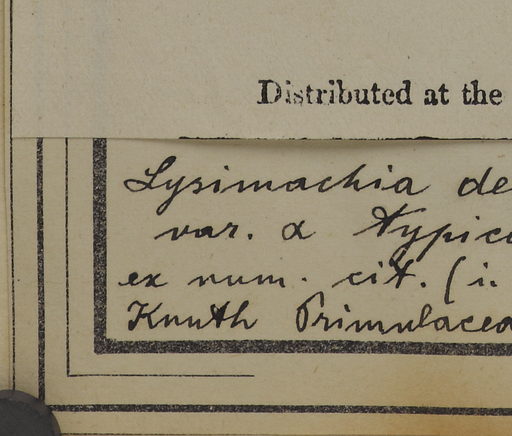 Distributed at the
Lysimachia de
var. α typica
ex num. cit. (i.
Knuth Primulacea